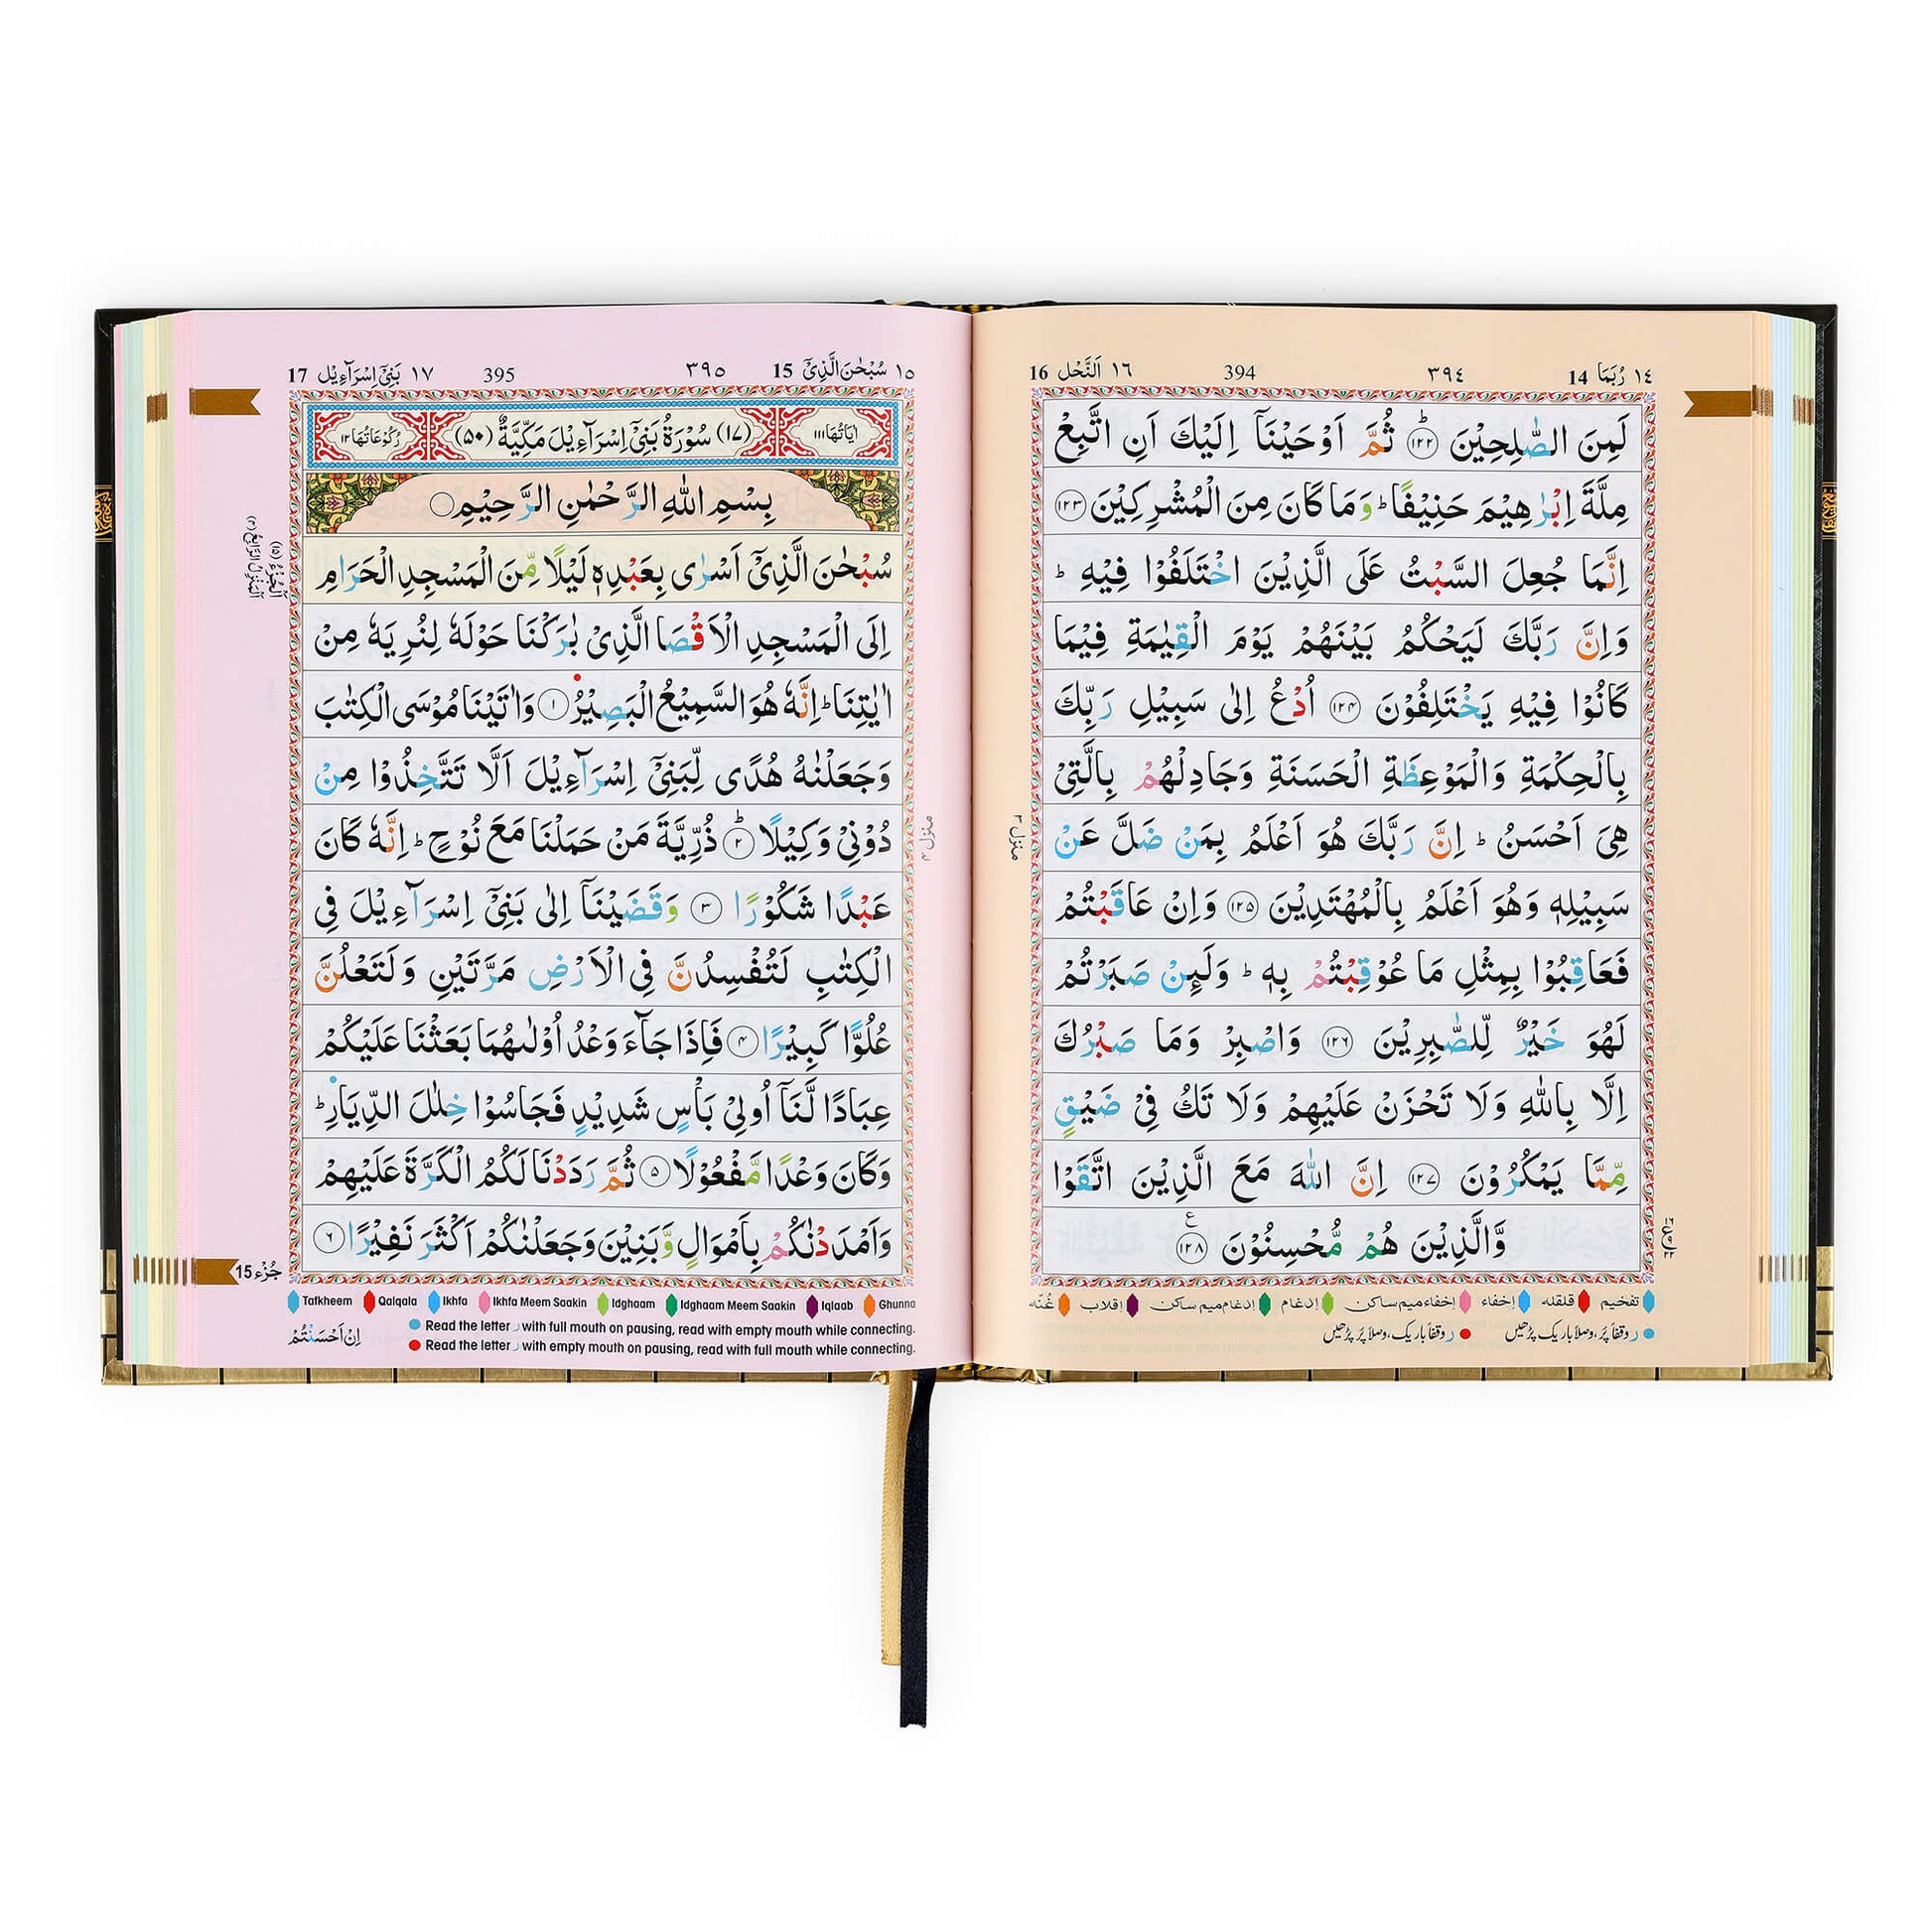 ١٤ رُبَمَا 14
٣٩٤
394
١٦ اَلنَّحْل 16
لَمِنَ الصّٰلِحِيْنَ ؕ ﴿۱۲۲﴾ ثُمَّ اَوْحَيْنَاۤ اِلَيْكَ اَنِ اتَّبِعْ
مِلَّةَ اِبْرٰهِيْمَ حَنِيْفًا ؕ وَمَا كَانَ مِنَ الْمُشْرِكِيْنَ ﴿۱۲۳﴾
اِنَّمَا جُعِلَ السَّبْتُ عَلَى الَّذِيْنَ اخْتَلَفُوْا فِيْهِ ؕ
وَاِنَّ رَبَّكَ لَيَحْكُمُ بَيْنَهُمْ يَوْمَ الْقِيٰمَةِ فِيْمَا
كَانُوْا فِيْهِ يَخْتَلِفُوْنَ ﴿۱۲۴﴾ اُدْعُ اِلٰى سَبِيْلِ رَبِّكَ
بِالْحِكْمَةِ وَالْمَوْعِظَةِ الْحَسَنَةِ وَجَادِلْهُمْ بِالَّتِيْ
هِيَ اَحْسَنُ ؕ اِنَّ رَبَّكَ هُوَ اَعْلَمُ بِمَنْ ضَلَّ عَنْ
سَبِيْلِهٖ وَهُوَ اَعْلَمُ بِالْمُهْتَدِيْنَ ﴿۱۲۵﴾ وَاِنْ عَاقَبْتُمْ
فَعَاقِبُوْا بِمِثْلِ مَا عُوْقِبْتُمْ بِهٖ ؕ وَلَىِٕنْ صَبَرْتُمْ
لَهُوَ خَيْرٌ لِّلصّٰبِرِيْنَ ﴿۱۲۶﴾ وَاصْبِرْ وَمَا صَبْرُكَ
اِلَّا بِاللّٰهِ وَلَا تَحْزَنْ عَلَيْهِمْ وَلَا تَكُ فِيْ ضَيْقٍ
مِّمَّا يَمْكُرُوْنَ ﴿۱۲۷﴾ اِنَّ اللّٰهَ مَعَ الَّذِيْنَ اتَّقَوْا
وَّالَّذِيْنَ هُمْ مُّحْسِنُوْنَ ﴿۱۲۸﴾ ع
منزل ۳
تفخيم قلقله إخفاء إخفاءميم ساكن إدغام إدغام ميم ساكن إقلاب غُنّه
ر وقفاً پُر، وصلاً باریک پڑھیں
ر وقفاً باریک، وصلاً پُر پڑھیں
١٥ سُبْحٰنَ الَّذِيْۤ 15
٣٩٥
395
١٧ بَنِيْۤ اِسْرَآءِيْل 17
اٰيَاتُهَا ١١١
(١٧) سُوْرَةُ بَنِيْۤ اِسْرَآءِيْلَ مَكِّيَّةٌ (٥٠)
رُكُوْعَاتُهَا ١٢
بِسْمِ اللّٰهِ الرَّحْمٰنِ الرَّحِيْمِ
سُبْحٰنَ الَّذِيْۤ اَسْرٰى بِعَبْدِهٖ لَيْلًا مِّنَ الْمَسْجِدِ الْحَرَامِ
اِلَى الْمَسْجِدِ الْاَقْصَا الَّذِيْ بٰرَكْنَا حَوْلَهٗ لِنُرِيَهٗ مِنْ
اٰيٰتِنَا ؕ اِنَّهٗ هُوَ السَّمِيْعُ الْبَصِيْرُ ﴿۱﴾ وَاٰتَيْنَا مُوْسَى الْكِتٰبَ
وَجَعَلْنٰهُ هُدًى لِّبَنِيْۤ اِسْرَآءِيْلَ اَلَّا تَتَّخِذُوْا مِنْ
دُوْنِيْ وَكِيْلًا ؕ ﴿۲﴾ ذُرِّيَّةَ مَنْ حَمَلْنَا مَعَ نُوْحٍ ؕ اِنَّهٗ كَانَ
عَبْدًا شَكُوْرًا ﴿۳﴾ وَقَضَيْنَاۤ اِلٰى بَنِيْۤ اِسْرَآءِيْلَ فِي
الْكِتٰبِ لَتُفْسِدُنَّ فِي الْاَرْضِ مَرَّتَيْنِ وَلَتَعْلُنَّ
عُلُوًّا كَبِيْرًا ﴿۴﴾ فَاِذَا جَآءَ وَعْدُ اُوْلٰىهُمَا بَعَثْنَا عَلَيْكُمْ
عِبَادًا لَّنَاۤ اُولِيْ بَاْسٍ شَدِيْدٍ فَجَاسُوْا خِلٰلَ الدِّيَارِ ؕ
وَكَانَ وَعْدًا مَّفْعُوْلًا ﴿۵﴾ ثُمَّ رَدَدْنَا لَكُمُ الْكَرَّةَ عَلَيْهِمْ
وَاَمْدَدْنٰكُمْ بِاَمْوَالٍ وَّبَنِيْنَ وَجَعَلْنٰكُمْ اَكْثَرَ نَفِيْرًا ﴿۶﴾
منزل ۴
اَلْجُزْءُ (١٥)
اَلْمَنْزِلُ الرَّابِعُ (٤)
جُزْء 15
Tafkheem Qalqala Ikhfa Ikhfa Meem Saakin Idghaam Idghaam Meem Saakin Iqlaab Ghunna
Read the letter ر with full mouth on pausing, read with empty mouth while connecting.
Read the letter ر with empty mouth on pausing, read with full mouth while connecting.
اِنْ اَحْسَنْتُمْ